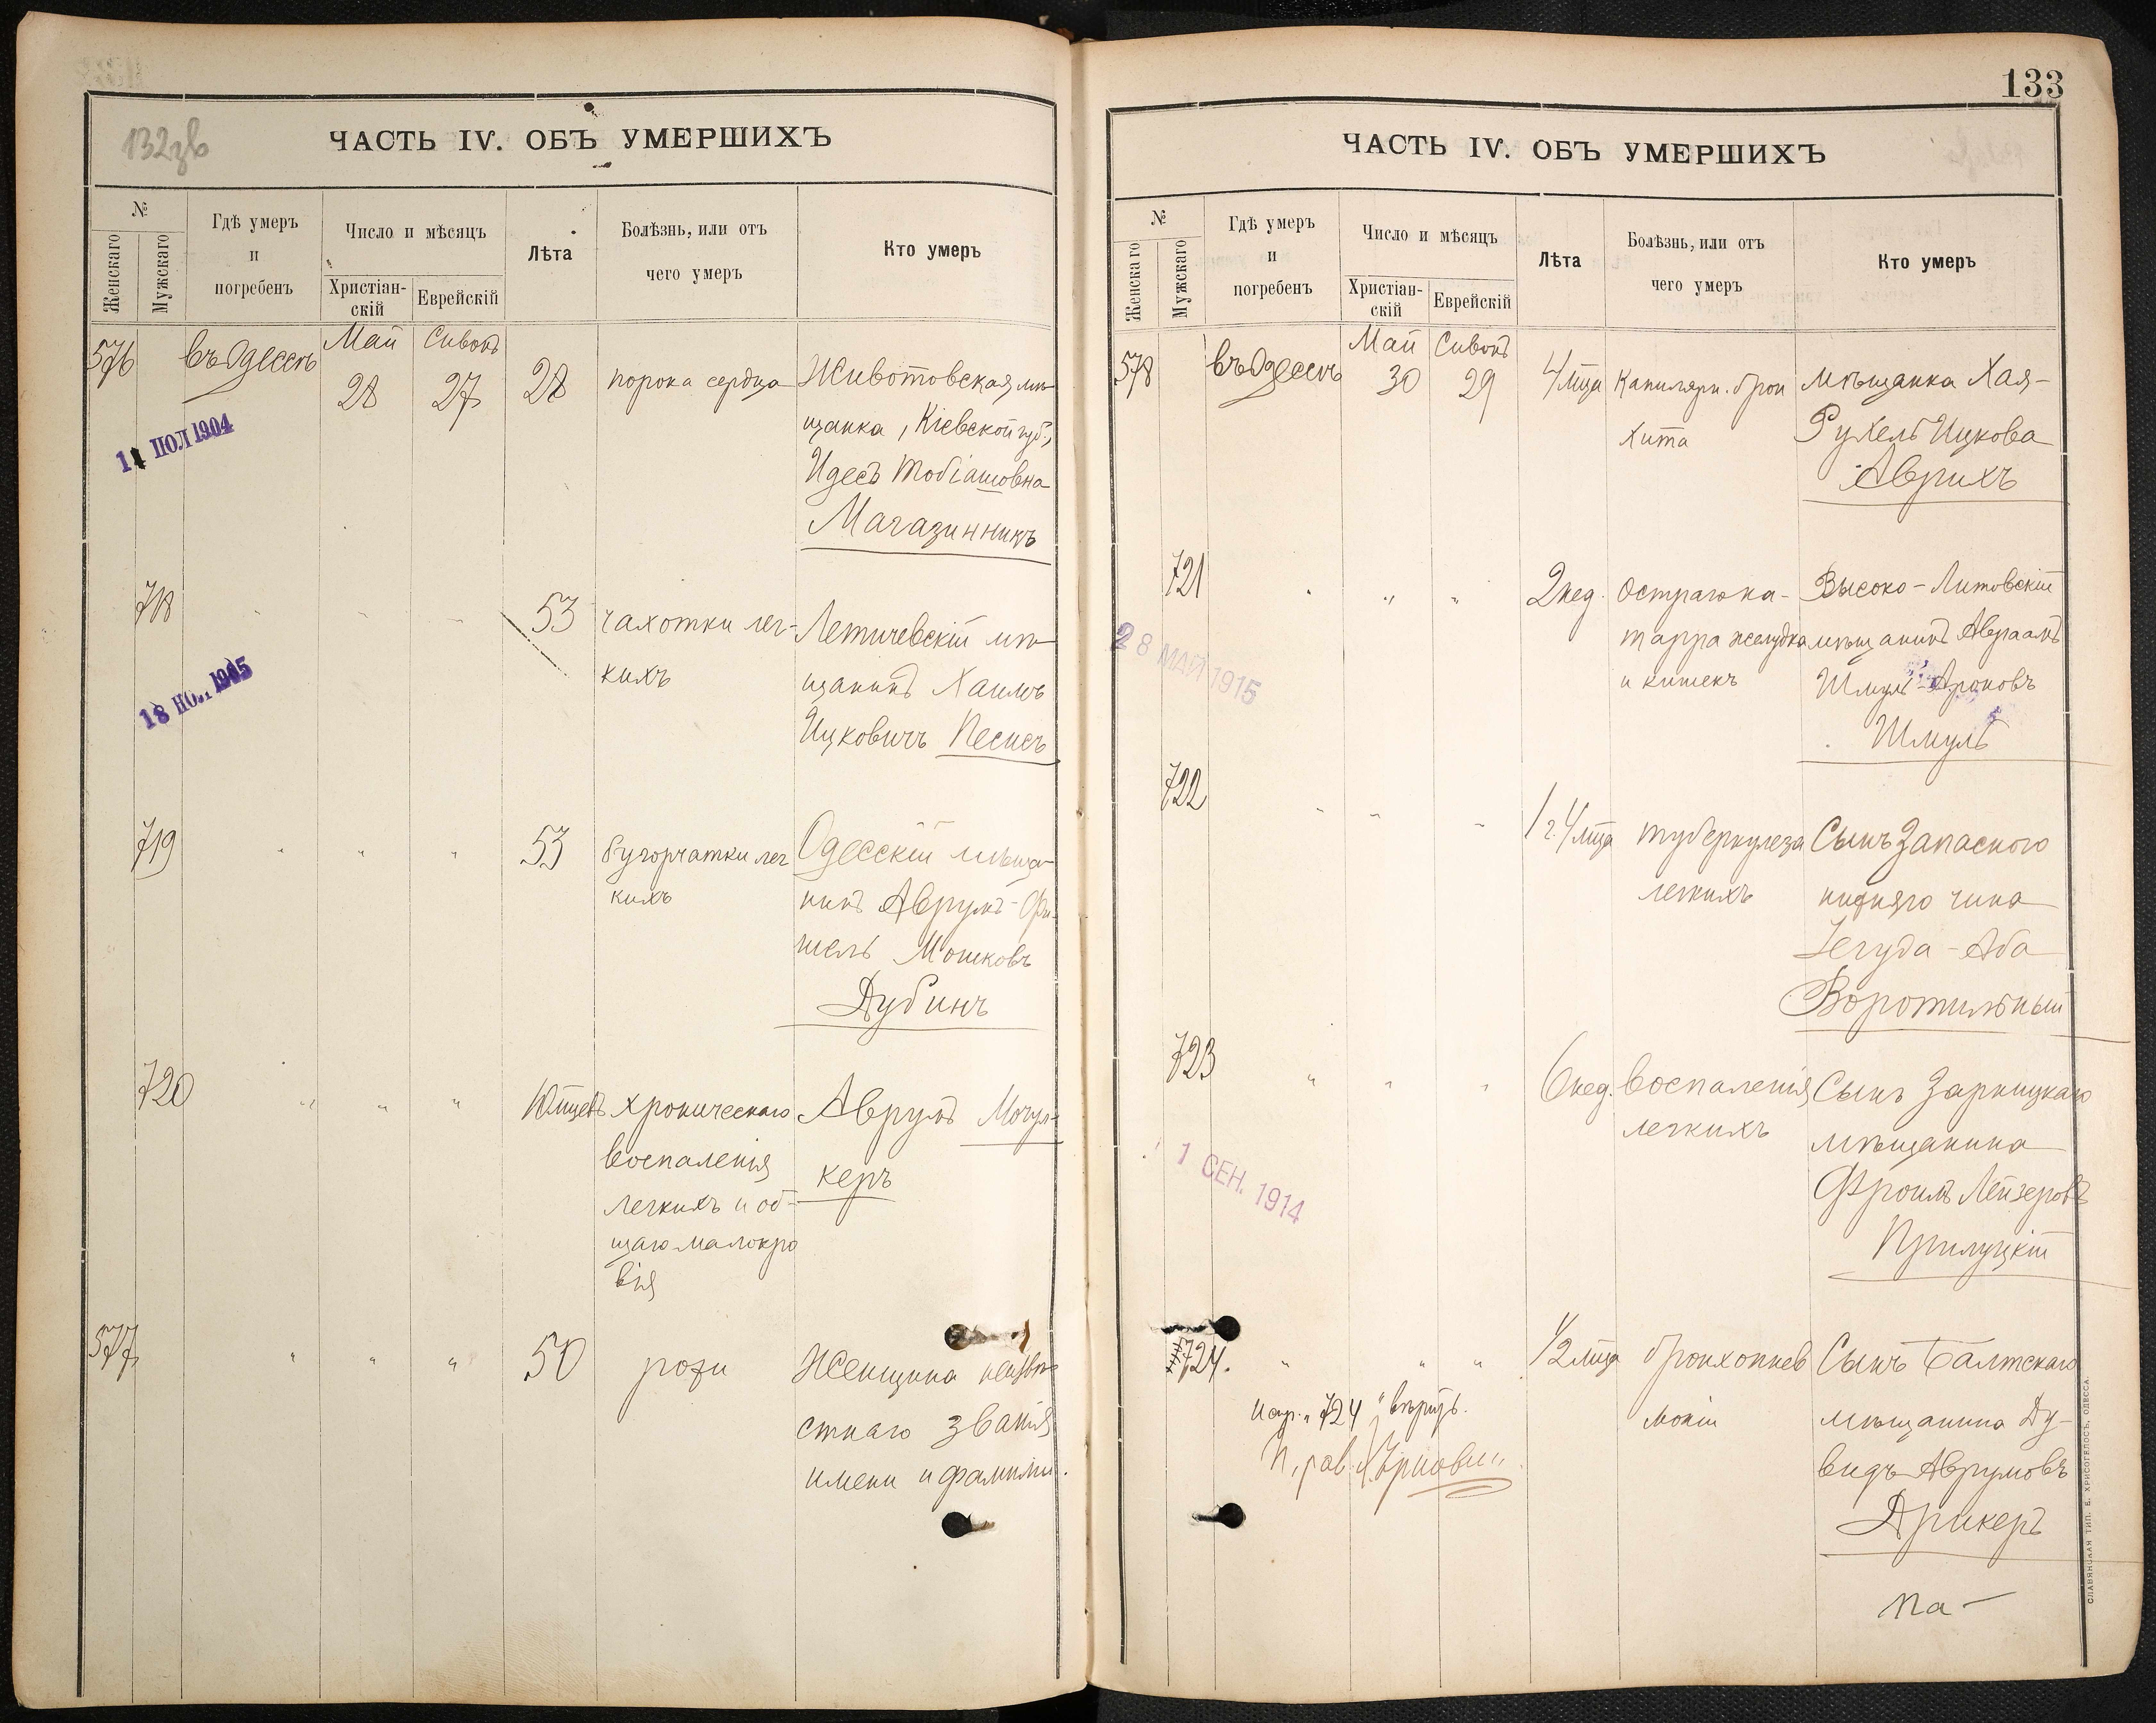 132зв
ЧАСТЬ IV. ОБЪ УМЕРШИХЪ
№
Женскаго
Мужскаго
Гдѣ умеръ
и
погребенъ
Число и мѣсяцъ
Христіан-
скій
Еврейскій
Лѣта
Болѣзнь, или отъ
чего умеръ
Кто умеръ
576
въ Одессѣ
Май
28
Сивонъ
27
28
порока сердца
Животовская мѣ-
щанка, Кіевской губ.,
Идесъ Тобіашовна
Магазинникъ
1904
718
53
чахотки лег-
кихъ
Летичевскій мѣ-
щанинъ Хаимъ
Ицковичъ Песисъ
719
53
бугорчатки лег
кихъ
Одесскій мѣща-
нинъ Аврумъ-Фи-
шель Мошковъ
Дубинъ
720
хроническаго
воспаленія
легкихъ и об-
щаго малокро
вія
Аврумъ
керъ
577
50
рожи
Женщина неизвѣ-
стнаго званія
имени и фамиліи.
133
ЧАСТЬ IV. ОБЪ УМЕРШИХЪ
№
Женскаго
Мужскаго
Гдѣ умеръ
и
погребенъ
Число и мѣсяцъ
Христіан-
скій
Еврейскій
Лѣта
Болѣзнь, или отъ
чего умеръ
Кто умеръ
578
въ Одессѣ
Май
30
Сивонъ
29
4 мца
Капилярн. брон
хита
мѣщанка Хая-
Рухель Ицкова
Аврихъ
721
2 нед.
Остраго ка-
тарра желудка
и кишекъ
Высоко-Литовскій
мѣщанинъ Авраамъ
Шмуль-Ароновъ
Шмуль
28 МАЙ 1915
722
1 г. 4 мца
туберкулеза
легкихъ
Сынъ Запаснаго
нижняго чина
Іегуда-Аба
Воротильный
723
6 нед.
воспаленія
легкихъ
Сынъ
мѣщанина
Фроимъ Лейзеровъ
Прилуцкій
1 СЕН. 1914
724.
1/2 мца
бронхопнев
моніи
Сынъ Балтскаго
мѣщанина Ду-
видъ Аврумовъ
Арикеръ
724
на-
СЛАВЯНСКАЯ ТИП. Е. ХРИСОГЕЛОСЪ, ОДЕССА.